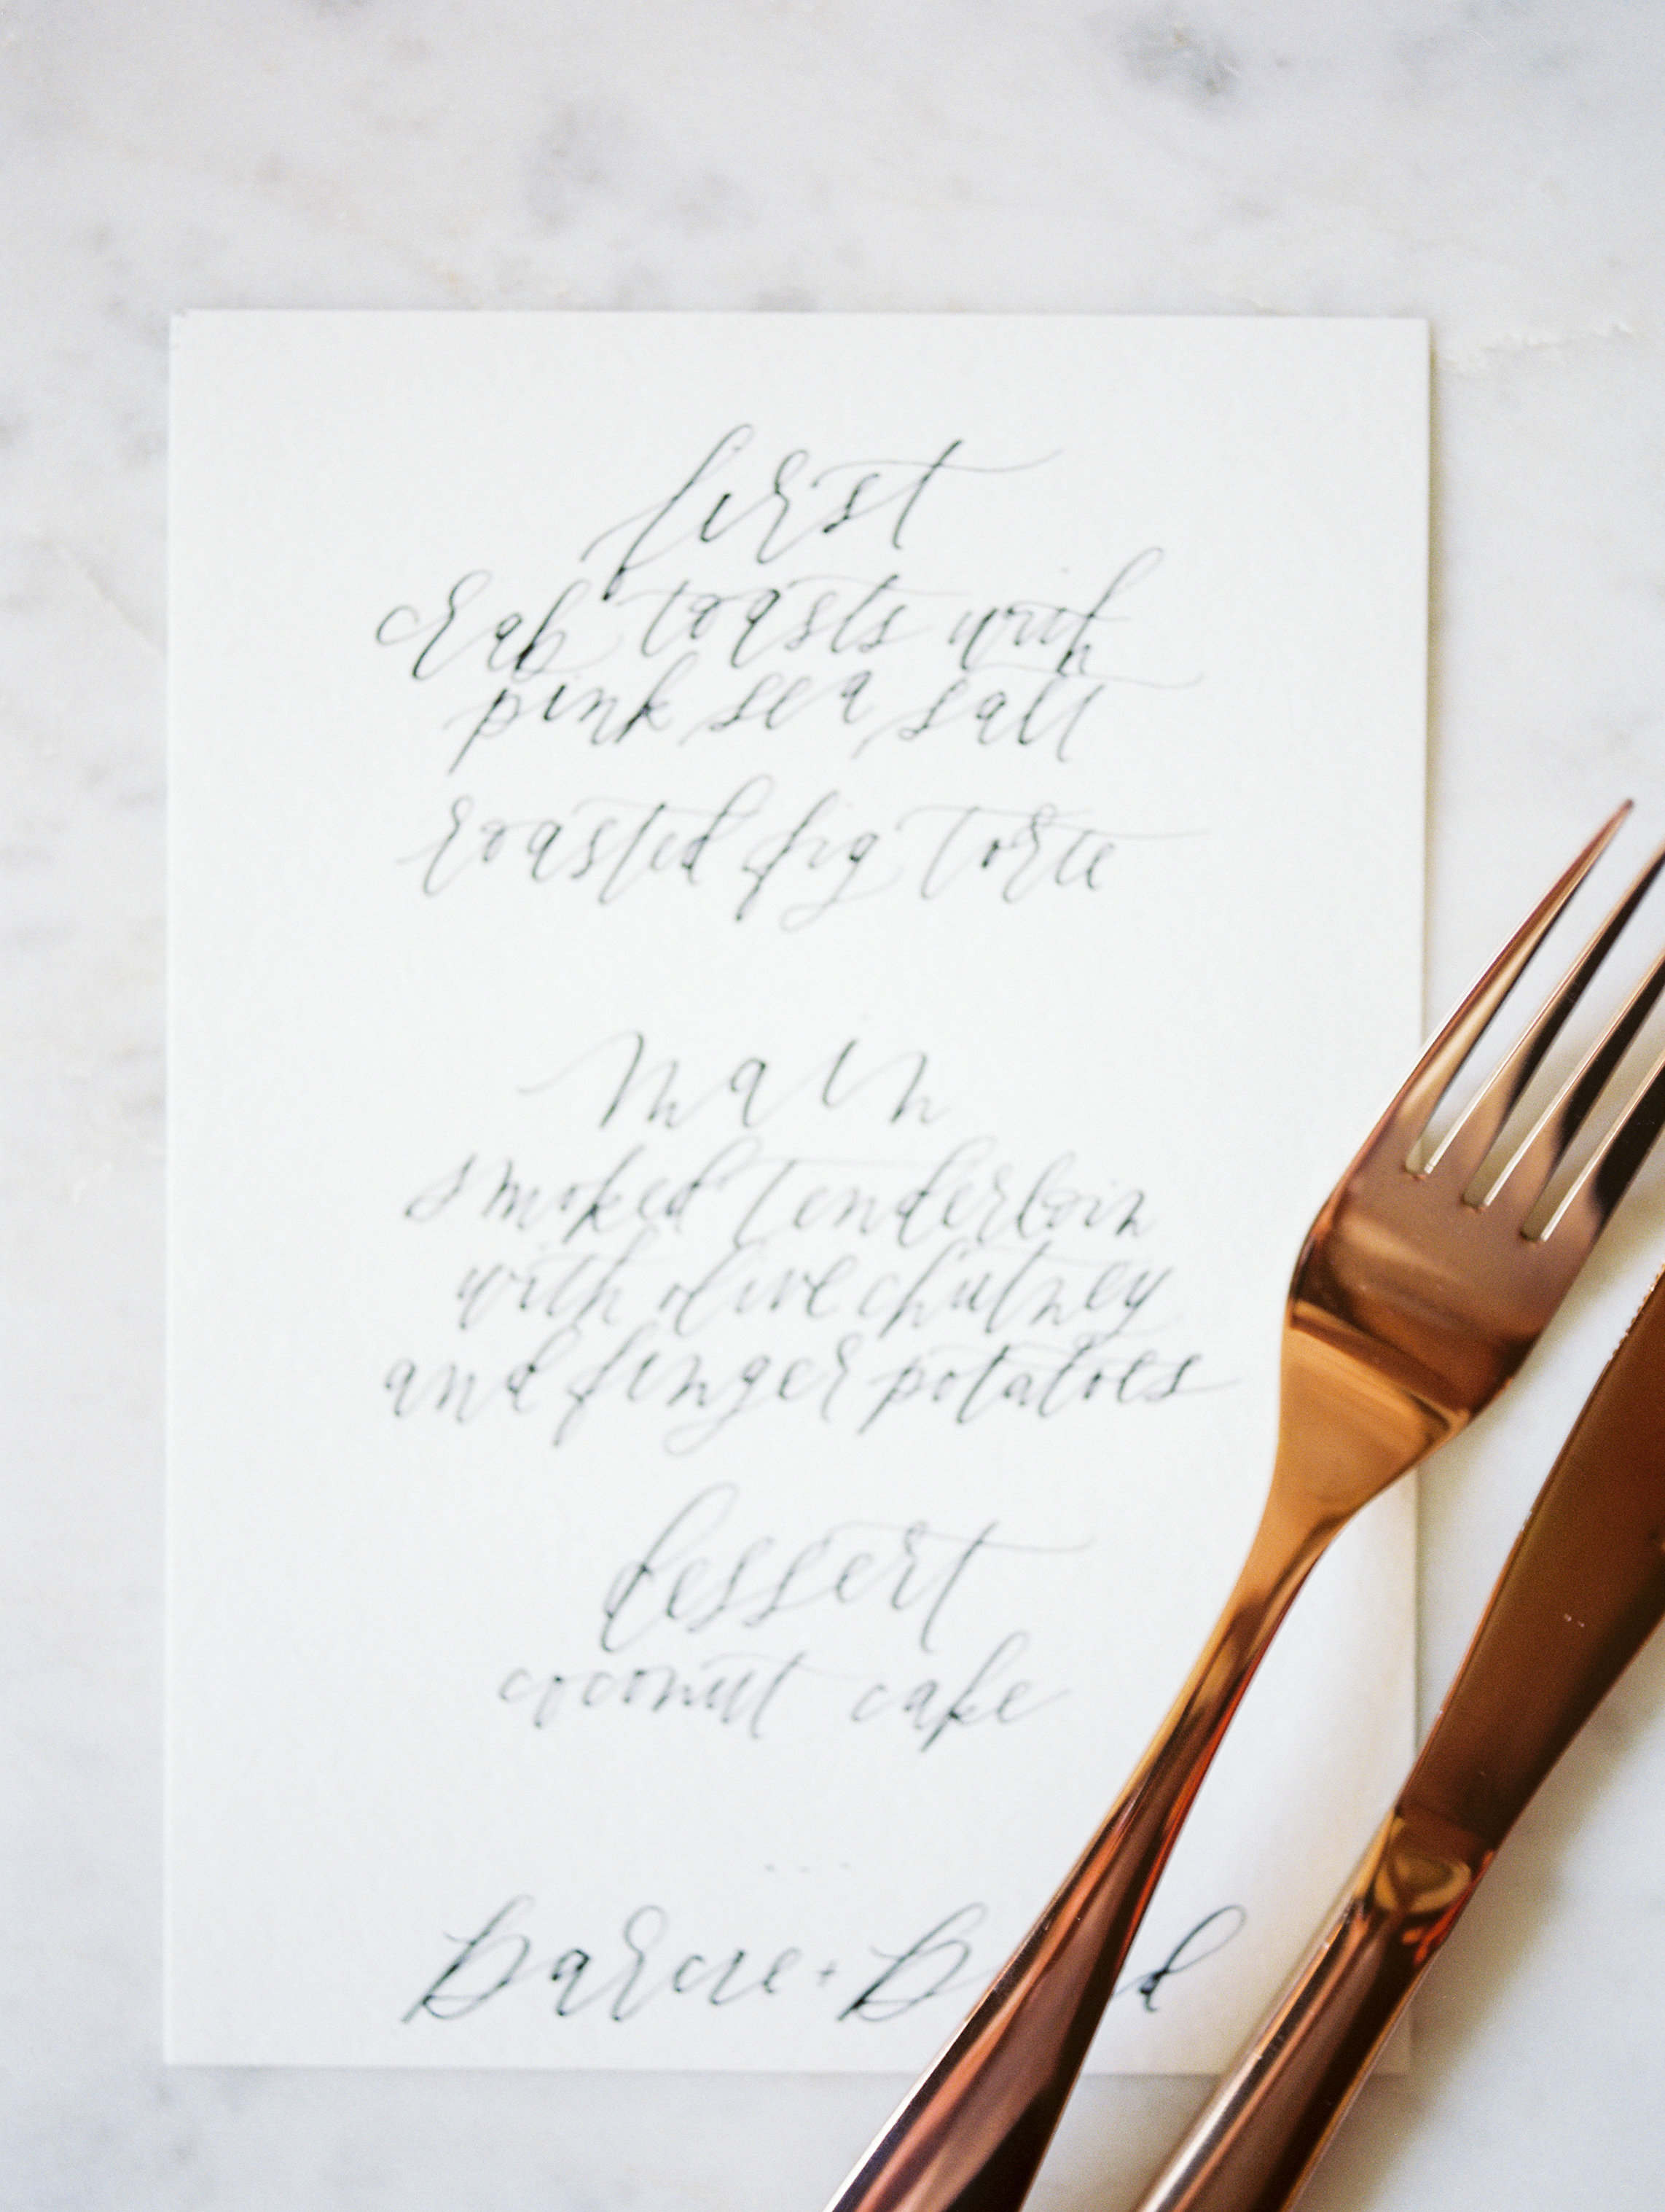 first
crab toasts with
pink sea salt
roasted fig torte
main
smoked tenderloin
with olive chutney
and finger potatoes
dessert
coconut cake
...
Darcie +